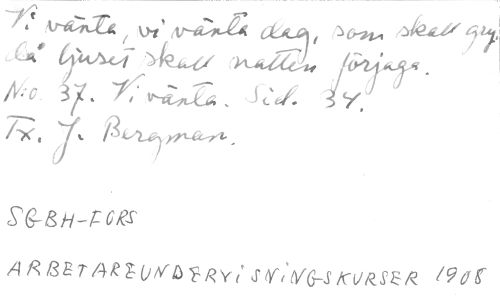 Vi vänta, vi vänta dag, som skall gry,
då ljuset skall natten förjaga.
N:o 37. Vi vänta. Sid. 34.
Tx. J. Bergman.
SGBH-FORS
ARBETAREUNDERVISNINGSKURSER 1908